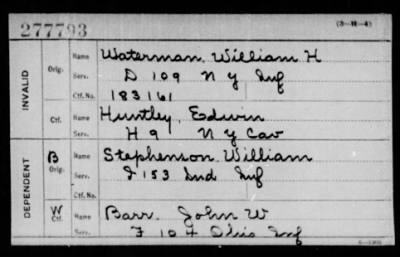 277793 (3-H-4)
INVALID
Orig. Name Waterman, William H
Serv. D 109 N Y Inf
Ctf. No. 183161
Ctf. Name Huntley, Edwin
Serv. H 9 N Y Cav
DEPENDENT
B Orig. Name Stephenson William
Serv. I 153 Ind Inf
Ctf. No.
W Ctf. Name Barr. John W
Serv. F 104 Ohio Inf